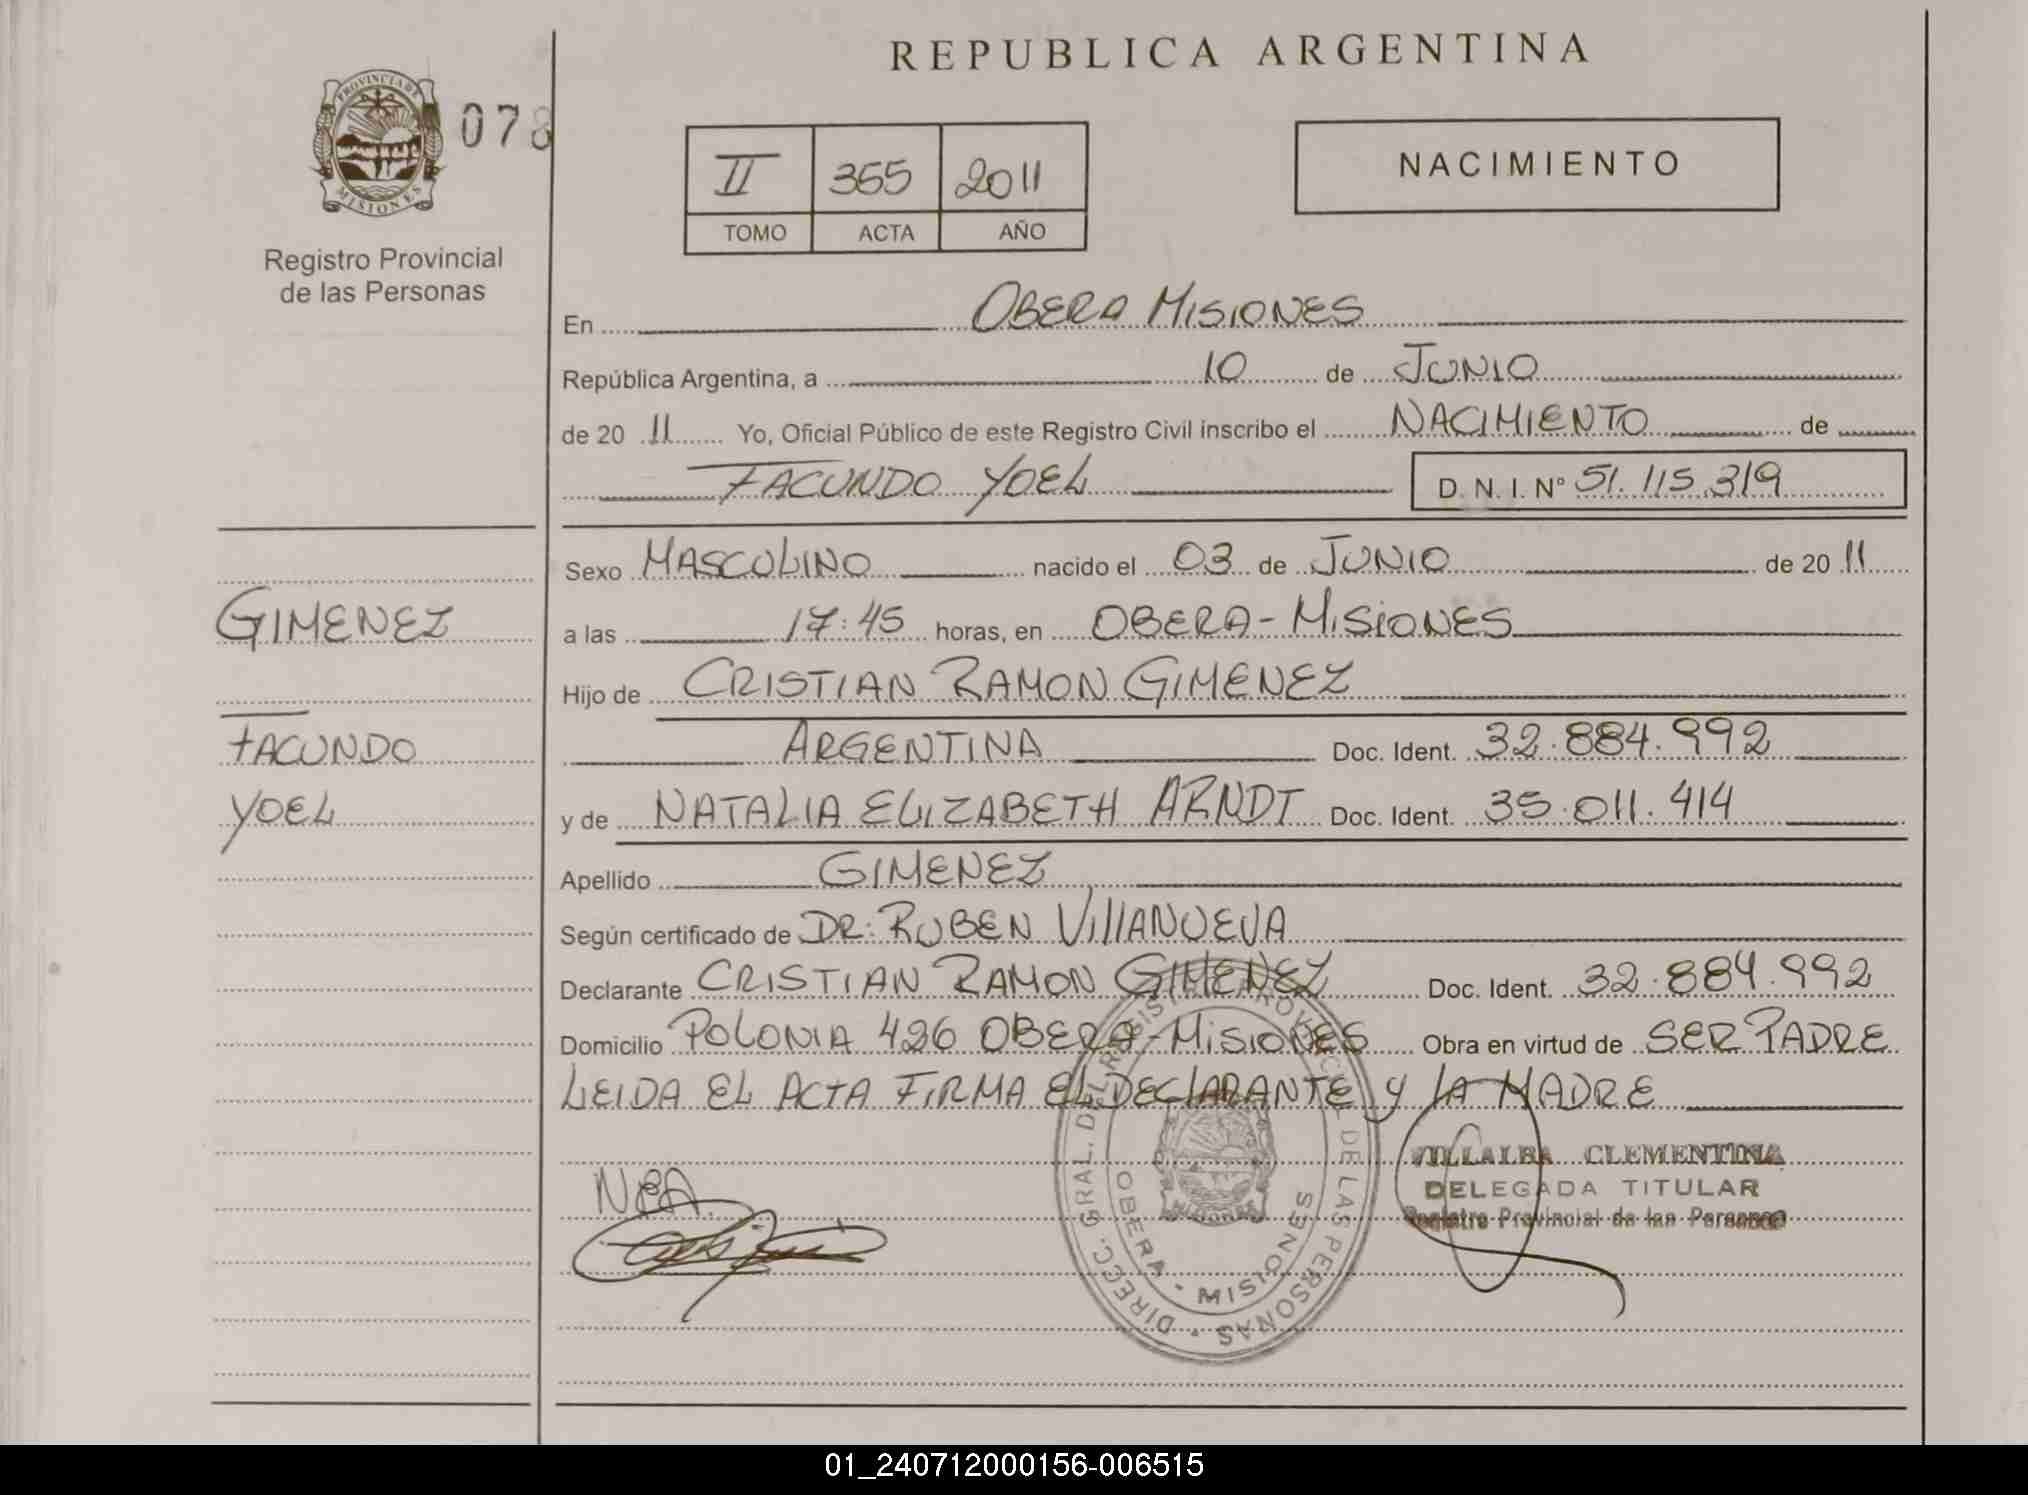 REPUBLICA ARGENTINA
PROVINCIA DE
MISIONES
078
Registro Provincial
de las Personas
II 355 2011
TOMO ACTA AÑO
NACIMIENTO
En OBERA MISIONES
República Argentina, a 10 de JUNIO
de 2011 Yo, Oficial Público de este Registro Civil inscribo el NACIMIENTO de
FACUNDO YOEL D. N. I. Nº 51.115.319
Sexo MASCULINO nacido el 03 de JUNIO de 2011
GIMENEZ
a las 17:45 horas, en OBERA - MISIONES
Hijo de CRISTIAN RAMON GIMENEZ
FACUNDO
ARGENTINA Doc. Ident. 32.884.992
YOEL
y de NATALIA ELIZABETH ARNDT Doc. Ident. 35.011.414
Apellido GIMENEZ
Según certificado de DR: RUBEN VILLANUEVA
Declarante CRISTIAN RAMON GIMENEZ Doc. Ident. 32.884.992
Domicilio POLONIA 426 OBERA - MISIONES Obra en virtud de SER PADRE
LEIDA EL ACTA FIRMA EL DECLARANTE Y LA MADRE
VILLALBA CLEMENTINA
DELEGADA TITULAR
Registro Provincial de las Personas
DIRECC. GRAL. DEL REGISTRO PROVINCIAL DE LAS PERSONAS
OBERA - MISIONES
01_240712000156-006515